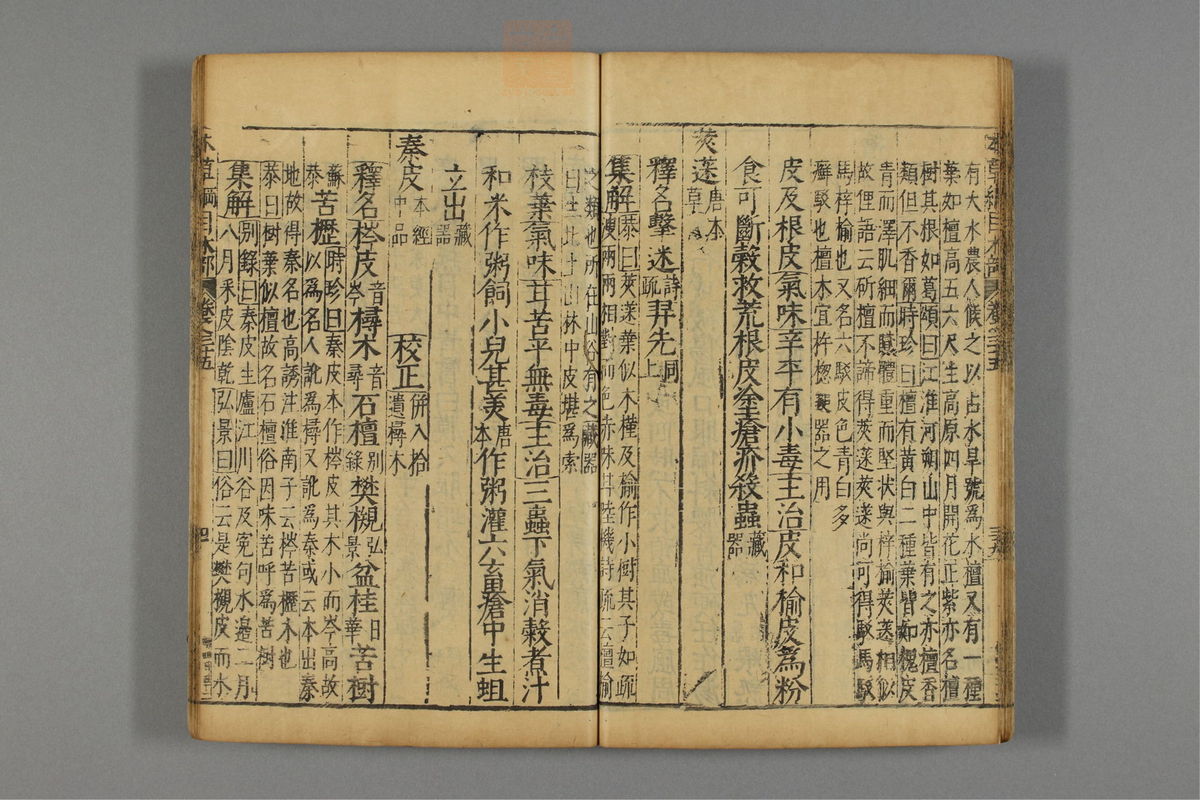 有大水農人候之以占水旱號爲水檀又有一種
葉如檀高五六尺生高原四月開花正紫亦名檀
樹其根如葛頌曰江淮河朔山中皆有之亦檀香
類但不香爾時珍曰檀有黃白二種葉皆如槐皮
青而澤肌細而膩體重而堅狀與梓榆莢蒾相似
故俚語云斫檀不諦得莢蒾莢蒾尚可得駁馬駁
馬梓榆也又名六駁皮色青白多
癬駁也檀木宜杵楤鎚器之用
皮及根皮氣味辛平有小毒主治皮和榆皮爲粉
食可斷穀救荒根皮塗瘡疥殺蟲藏器
莢蒾唐本草
釋名擊迷詩疏羿先同上
集解恭曰莢蒾葉似木槿及榆作小樹其子如疏
溲兩兩相對而色赤味甘陸機詩疏云檀榆
之類也所在山谷有之藏器
曰生北土山林中皮堪爲索
枝葉氣味甘苦平無毒主治三蟲下氣消穀煮汁
和米作粥飼小兒甚美唐本作粥灌六畜瘡中生蛆
立出藏器
秦皮本經中品 校正併入拾遺桪木
釋名梣皮音岑桪木音尋石檀別錄樊槻弘景盆桂日華苦樹
蘇恭苦櫪時珍曰秦皮本作梣皮其木小而岑高故
以爲名人訛爲桪又訛爲秦或云本出秦
地故得秦名也高誘注淮南子云梣苦櫪木也
恭曰樹葉似檀故名石檀俗因味苦呼爲苦樹
集解別錄曰秦皮生廬江川谷及冤句水邊二月
八月采皮陰乾弘景曰俗云是樊槻皮而水
本草綱目木部 卷之三十五